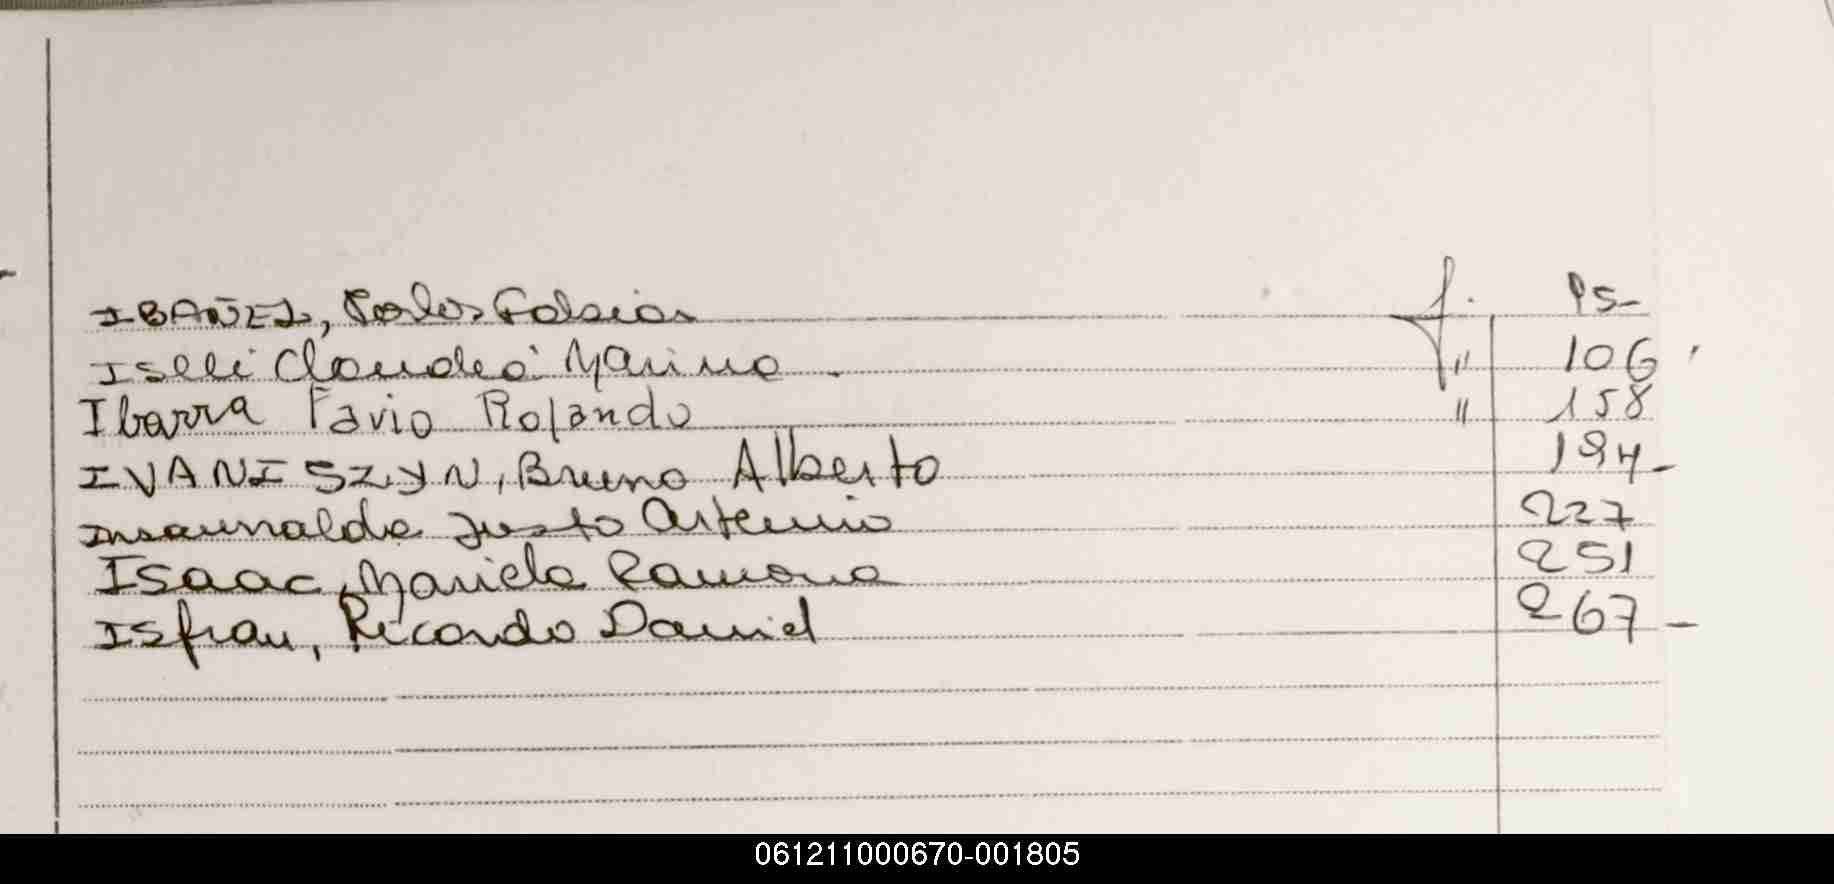 IBAÑEZ, Carlos Fabian f. 95-
Iselli Claudia Marina " 106
Ibarra Favio Rolando " 158
IVANISZYN, Bruno Alberto 194-
Insaurralde Justo Artemio 227
Isaac, Mariela Ramona 251
ISfran, Ricardo Daniel 267-
061211000670-001805